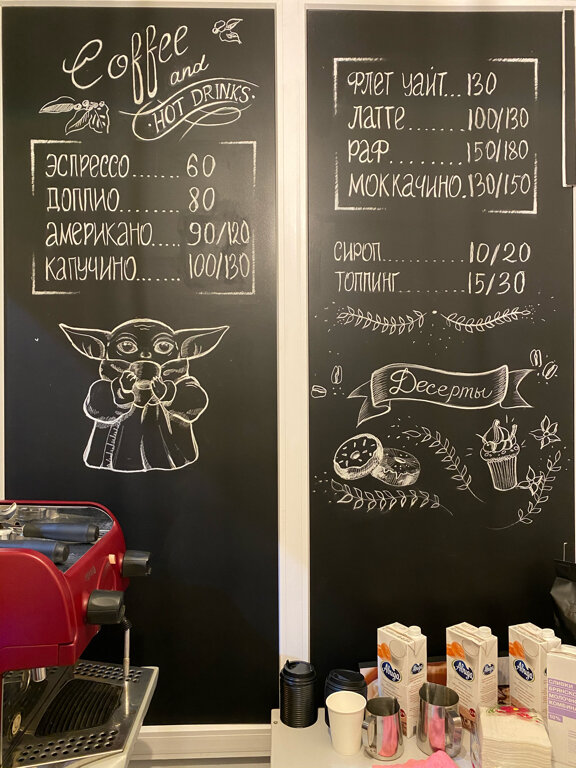 Coffee
and
HOT DRINKS
ЭСПРЕССО....... 60
ДОППИО......... 80
АМЕРИКАНО..... 90/120
КАПУЧИНО....... 100/130
ФЛЕТ УАЙТ... 130
ЛАТТЕ........100/130
РАФ..........150/180
МОККАЧИНО.130/150
СИРОП............10/20
ТОППИНГ..........15/30
Десерты
СЛИВКИ
БРЯНСКИЙ
МОЛОЧНЫЙ
КОМБИНАТ
10%